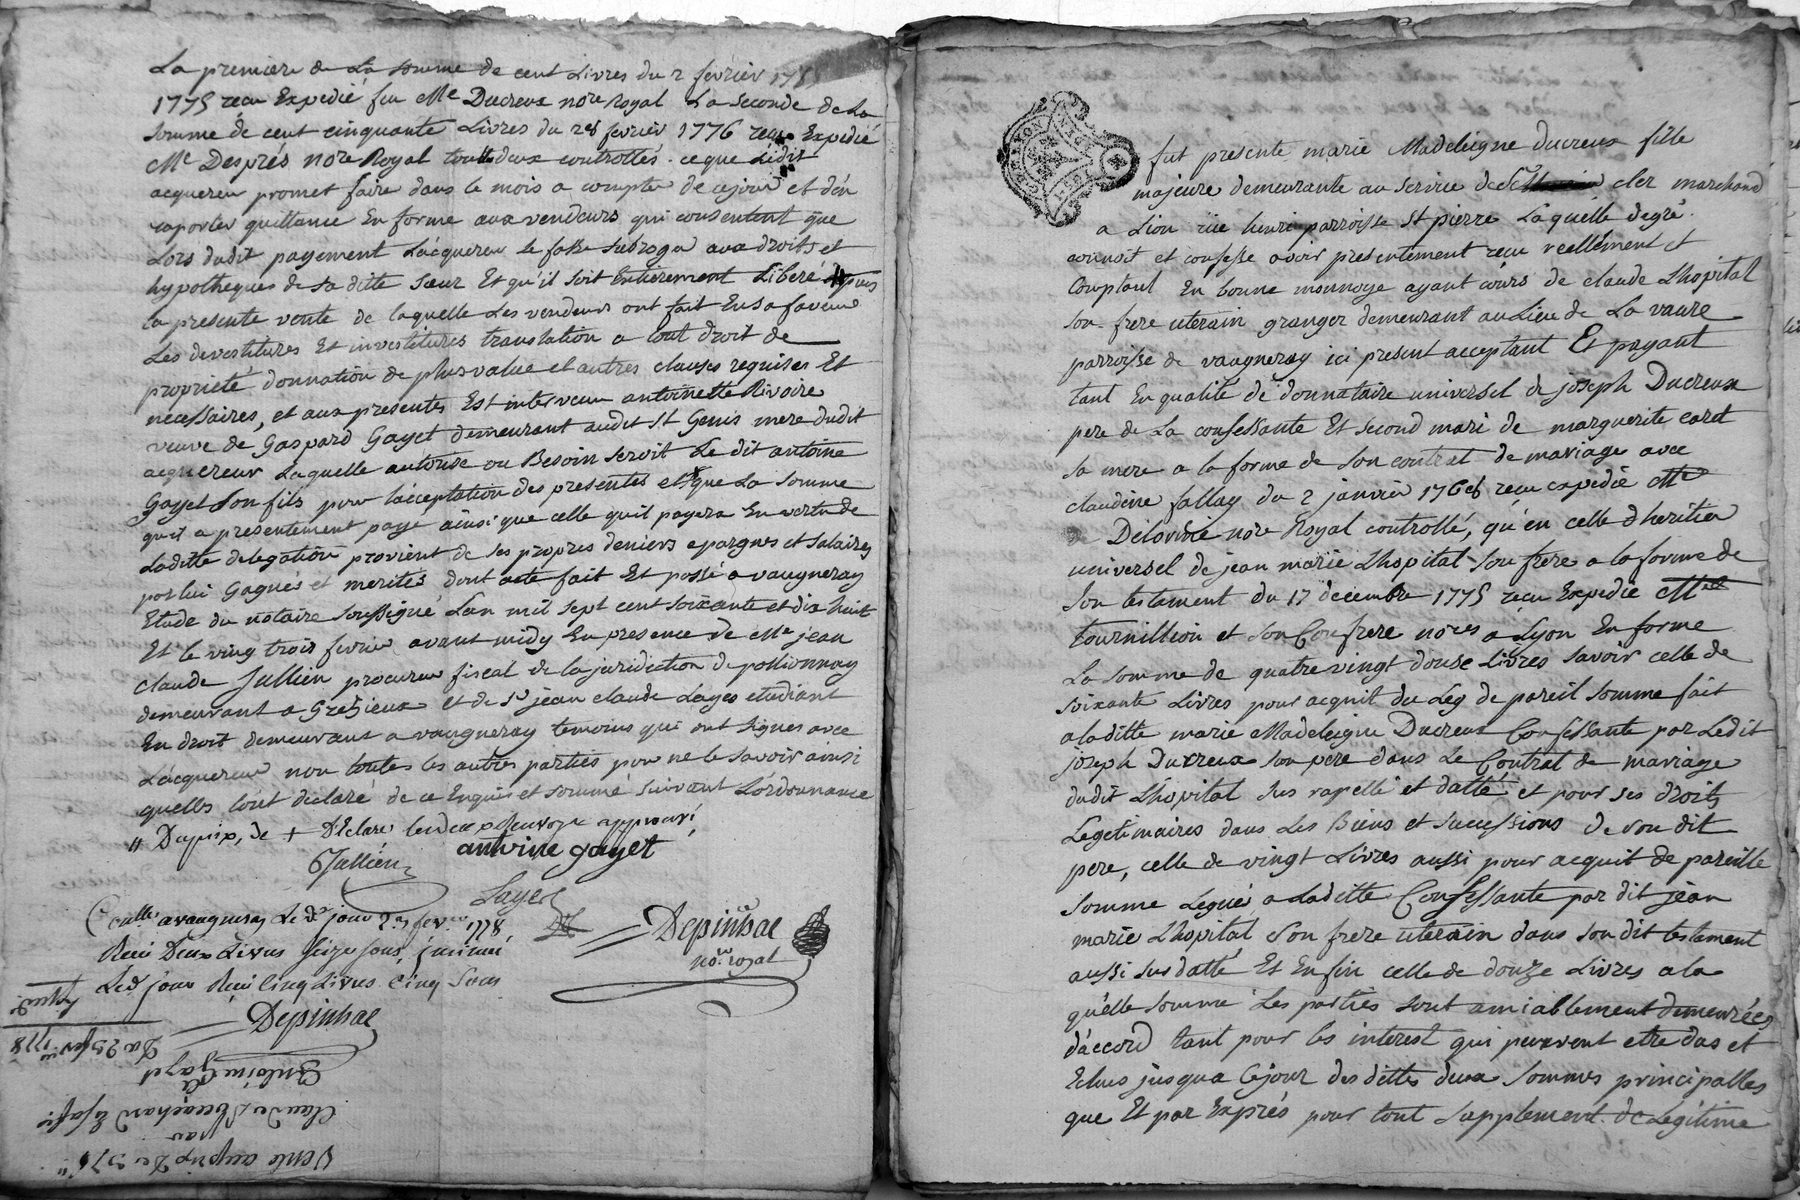 La premiere de La somme de cent Livres du 2 fevrier
1775 recu Expedié feu Me Ducreux nore Royal La seconde de La
somme de cent cinquante Livres du 28 fevrier 1776 recu Expedié
Me Després nore Royal touttes deux controllés. ce que Ledit
acquereur promet faire dans le mois a compter de ce jour et d'en
raporter quittance En forme aux vendeurs qui consentent que
Lors dudit payement Lacquereur se fasse subroger aux droits et
hypotheques de sa ditte sœur Et qu'il soit Entierement Liberé
la presente vente de laquelle Les vendeurs ont fait En sa faveur
Les devestitures Et investitures translation a tout droit de
propriété donnation de plus value et autres clauses requises Et
necessaires, et aux presentes Est intervenu antoinette Rivoire
veuve de Gaspard Gayet demeurant audit St Genis mere dudit
acquereur Laquelle autorise ou Besoin seroit Le dit antoine
Gayet son fils pour l'acceptation des presentes et que La somme
qu'il a presentement payé ainsi que celle qu'il payera En vertu de
Laditte delegation provient de ses propres deniers epargnes et salaires
par lui Gagnés et merités dont acte fait Et passé a vaugneray
Etude du notaire soussigné L'an mil sept cent soixante et dix huit
Et le vingt trois fevrier avant midy En presence de Me jean
claude Jullien procureur fiscal de la juridiction de pollionnay
demeurant a Grezieux et de sr jean claude Layes etudiant
En droit demeurant a vaugneray temoins qui ont signes avec
L'acquereur non touttes les autres parties pour ne le savoir ainsi
quelles l'ont declaré de ce Enquis et sommé suivant L'ordonnance
" Du prix, de + Declare approuvé
Jullien antoine gayet
Layes
Depinhac
nore royal
Conllé a vaugneray Le d. jour 23 fevrier 1778
Recu Deux Livres
Led. jour Recu Cinq Livres Cinq Sous
Depinhac
Du 23 fevrier 1778
Antoine Gayet
a
Claude
par
Vente au prix de 376 "
fut presente marie Madeleigne ducreux fille
majeure demeurante au service de Sr cler marchand
a Lion rüe henri parroisse St pierre Laquelle de gré
connoit et confesse avoir presentement recu reellement et
Comptant En bonne monnoye ayant cours de claude Lhopital
son frere uterain granger demeurant au Lieu de La vaure
parroisse de vaugneray ici present acceptant Et payant
tant En qualité de donnataire universel de joseph Ducreux
pere de La confessante Et second mari de marguerite caret
sa mere a la forme de son contrat de mariage avec
claudine fallay du 2 janvier 1768 recu expedié Me
Delorme nore Royal controllé, qu'en celle d'heritier
universel de jean marie Lhopital son frere a la forme de
son testament du 17 decembre 1775 recu Expedié Me
tournillion et son Confrere nores a Lyon En forme
La somme de quatre vingt douse Livres savoir celle de
soixante Livres pour acquit du Leg de pareil somme fait
a laditte marie Madeleigne Ducreux Confessante par Ledit
joseph Ducreux son pere dans Le Contrat de mariage
dudit Lhopital sus rapellé et datté et pour ses droits
Legitimaires dans Les Biens et successions de son dit
pere, celle de vingt Livres aussi pour acquit de pareille
somme Legué a Laditte Confessante par dit jean
marie Lhopital son frere uterain dans son dit testament
aussi sus datté Et Enfin celle de douze Livres a la
quelle somme Les parties sont amiablement demeurées
d'accord tant pour les interest qui peuvent etre dus et
Echus jusqua ce jour des dittes deux sommes principalles
que Et par Exprés pour tout supplement de Legitime